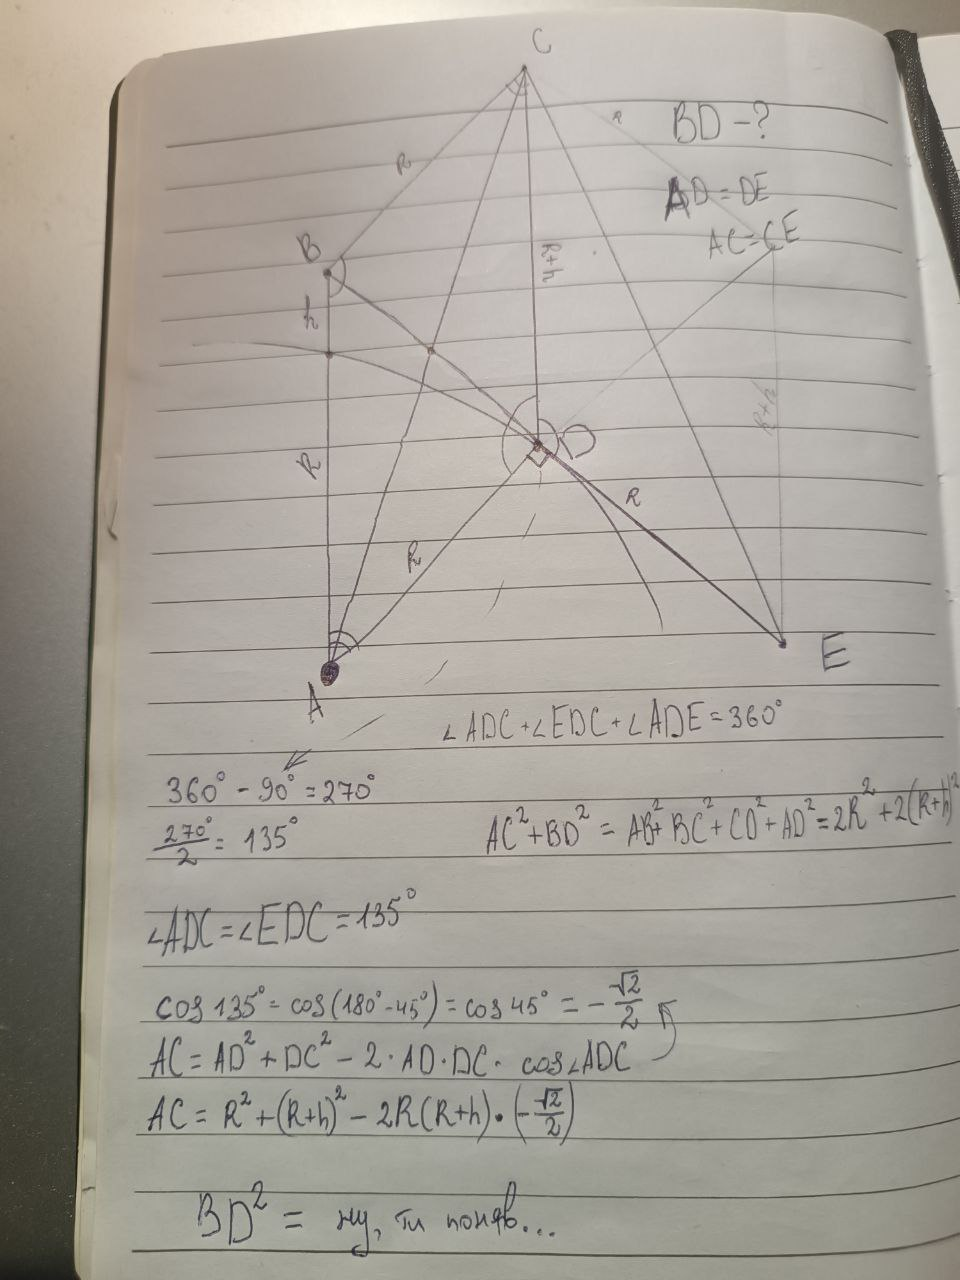 C
R
R
BD -?
AD = DE
AC = CE
B
h
R+h
R
D
R
R+h
R
A
E
∠ADC + ∠EDC + ∠ADE = 360°
360° - 90° = 270°
270°/2 = 135°
AC² + BD² = AB² + BC² + CD² + AD² = 2R² + 2(R+h)²
∠ADC = ∠EDC = 135°
cos 135° = cos(180° - 45°) = cos 45° = -√2/2
AC = AD² + DC² - 2·AD·DC· cos∠ADC
AC = R² + (R+h)² - 2R(R+h)·(-√2/2)
BD² = ну, ти поняв...